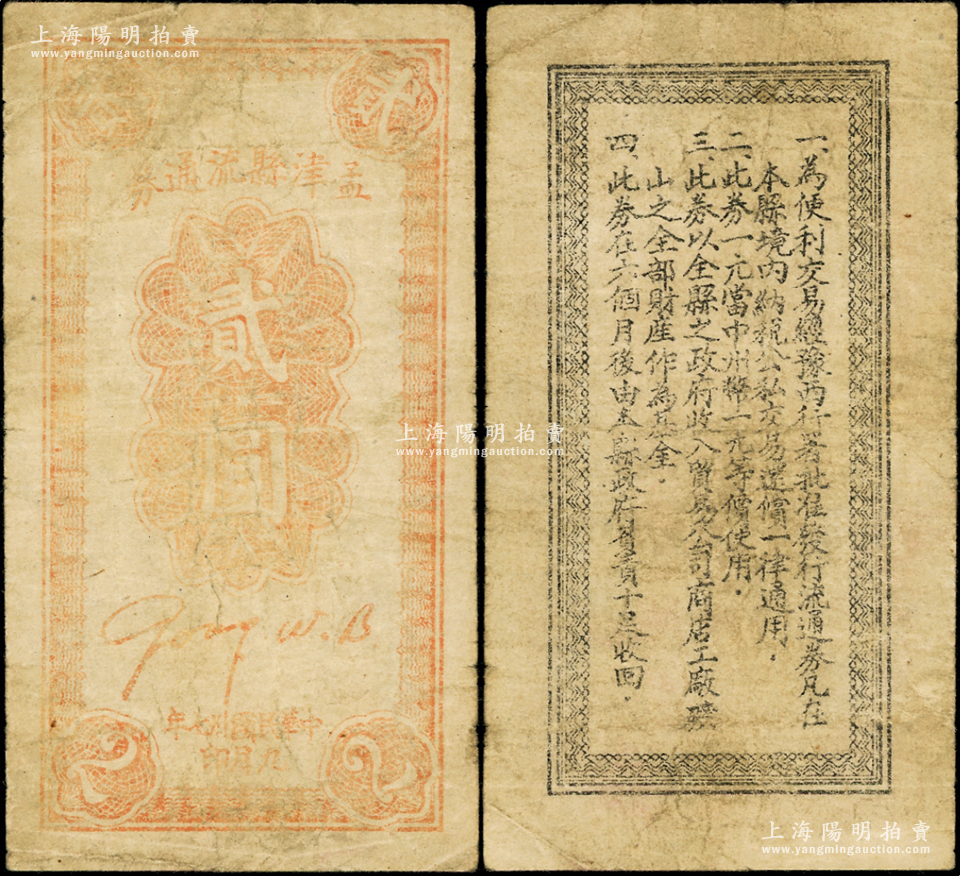 上海陽明拍賣
www.yangmingauction.com
孟津縣流通券
貳圓
W. B
中華民國卅七年
九月印
2
2
一、為便利交易經豫西行署批准發行流通券凡在
本縣境内納稅公私交易還價一律通用.
二、此券一元當中州幣一元等價使用.
三、此券以全縣之政府收入貿易公司商店工廠礦
山之全部財産作為基金.
四、此券在六個月後由全縣政府負責十足收回.
上海陽明拍賣
www.yangmingauction.com
上海陽明拍賣
www.yangmingauction.com